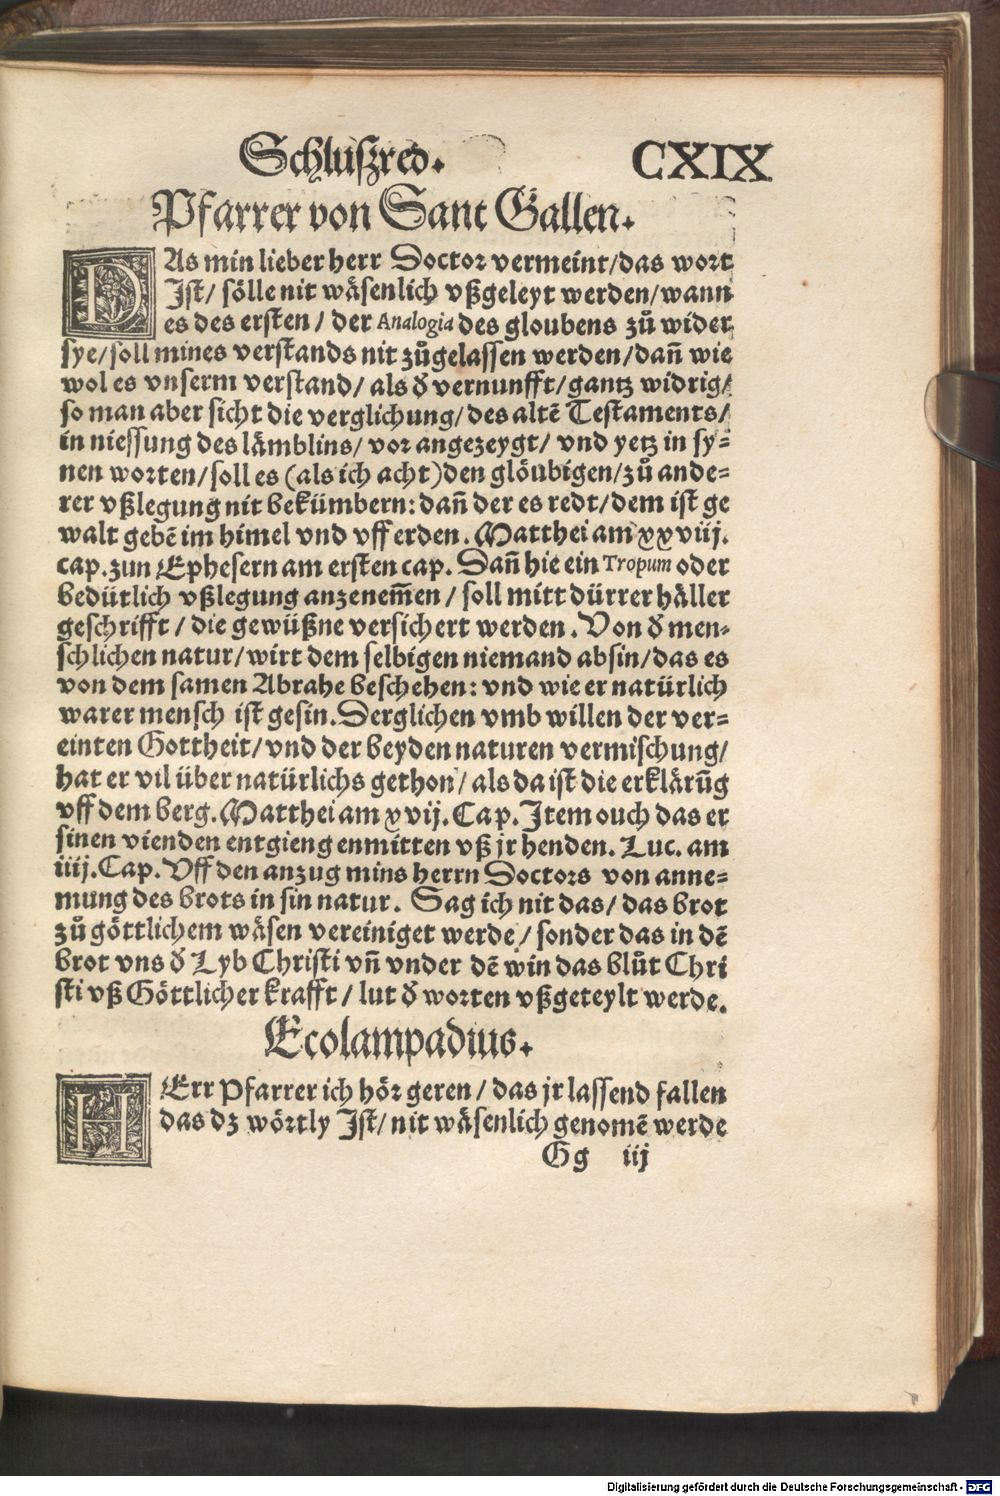 Schluszred. CXIX
Pfarrer von Sant Gallen.
DAs min lieber herr Doctor vermeint/das wort
Jst/ sölle nit wäsenlich vßgeleyt werden/wann
es des ersten/ der Analogia des gloubens zů wider
sye/soll mines verstands nit zůgelassen werden/dañ wie
wol es vnserm verstand/ als ð vernunfft/gantz widrig/
so man aber sicht die verglichung/des altẽ Testaments/
in niessung des lämblins/ vor angezeygt/ vnd yetz in sy⸗
nen worten/soll es (als ich acht)den glöubigen/zů ande⸗
rer vßlegung nit bekümbern: dañ der es redt/dem ist ge
walt gebẽ im himel vnd vff erden. Matthei am xxviij.
cap. zun Ephesern am ersten cap. Dañ hie ein Tropum oder
bedütlich vßlegung anzenem̃en/ soll mitt dürrer häller
geschrifft/ die gewüßne versichert werden. Von ð men⸗
schlichen natur/wirt dem selbigen niemand absin/das es
von dem samen Abrahe beschehen: vnd wie er natürlich
warer mensch ist gesin. Derglichen vmb willen der ver⸗
einten Gottheit/vnd der beyden naturen vermischung/
hat er vil über natürlichs gethon/ als da ist die erklärũg
vff dem berg. Matthei am xvij. Cap. Jtem ouch das er
sinen vienden entgieng enmitten vß jr henden. Luc. am
iiij. Cap. Vff den anzug mins herrn Doctors von anne⸗
mung des brots in sin natur. Sag ich nit das/ das brot
zů göttlichem wäsen vereiniget werde/ sonder das in dẽ
brot vns ð Lyb Christi vñ vnder dẽ win das blůt Chri
sti vß Göttlicher krafft/ lut ð worten vßgeteylt werde.
Ecolampadius.
HErr Pfarrer ich hör geren/ das jr lassend fallen
das dz wörtly Jst/ nit wäsenlich genomẽ werde
Gg iij
Digitalisierung gefördert durch die Deutsche Forschungsgemeinschaft - DFG